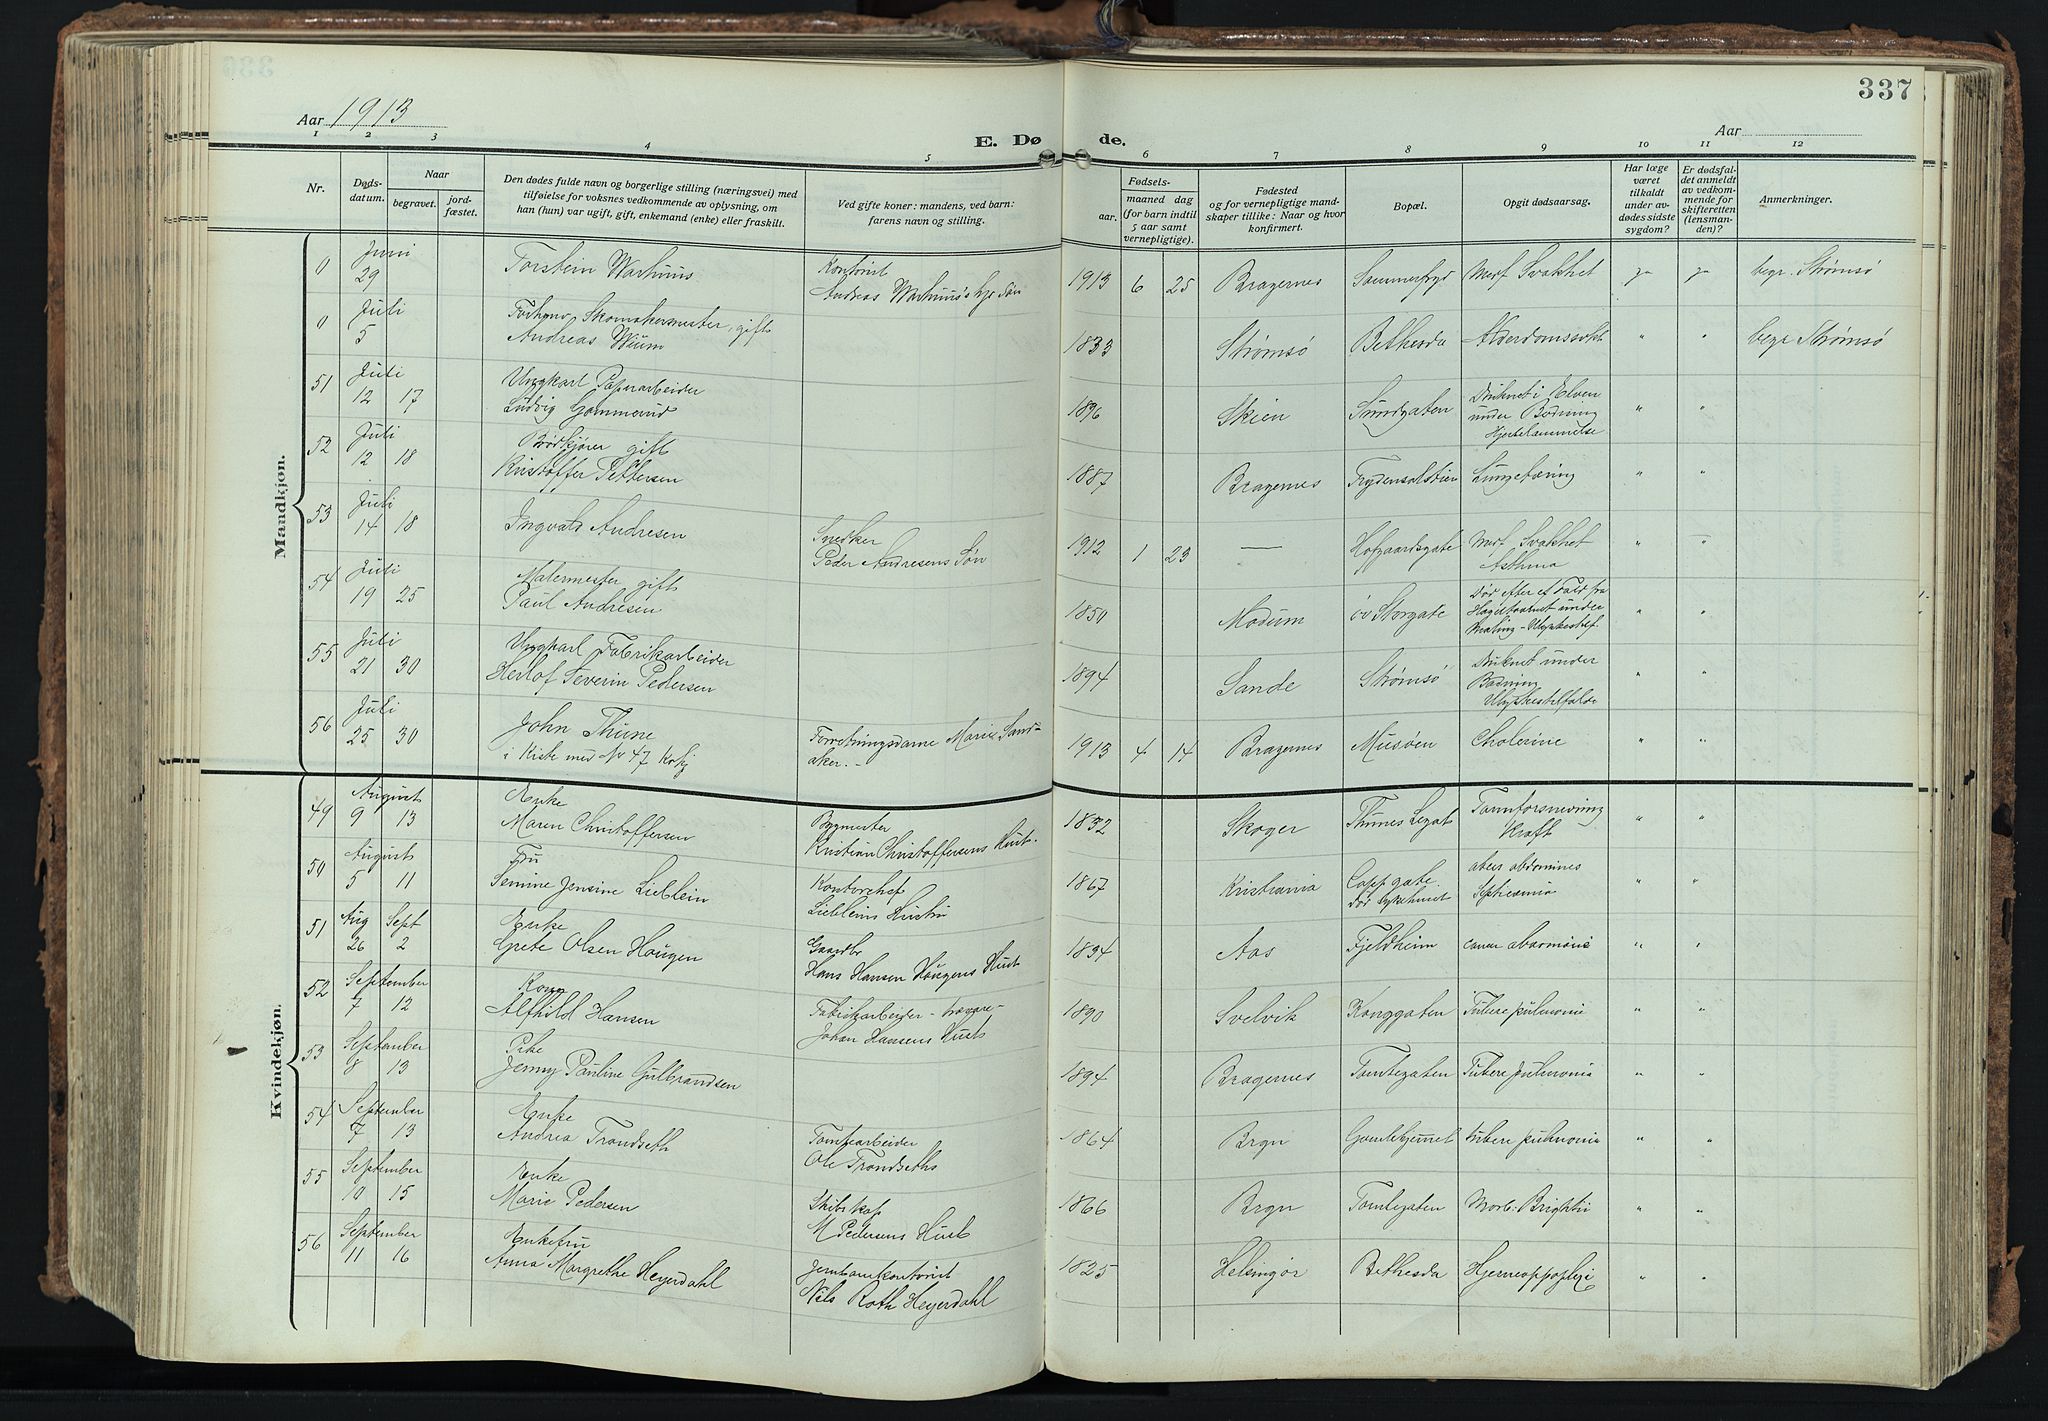 337
Aar 1913
E. Dø de.
Aar
1 2 3 4 5 6 7 8 9 10 11 12
Nr.
Døds-
datum.
Naar
begravet.
jord-
fæstet.
Den dødes fulde navn og borgerlige stilling (næringsvei) med
tilføielse for voksnes vedkommende av oplysning, om
han (hun) var ugift, gift, enkemand (enke) eller fraskilt.
Ved gifte koner: mandens, ved barn:
farens navn og stilling.
Fødsels-
aar.
maaned dag
(for barn indtil
5 aar samt
vernepligtige).
Fødested
og for vernepligtige mand-
skaper tillike: Naar og hvor
konfirmert.
Bopæl.
Opgit dødsaarsag.
Har læge
været
tilkaldt
under av-
dødes sidste
sygdom?
Er dødsfal-
det anmeldt
av vedkom-
mende for
skifteretten
(lensman-
den)?
Anmerkninger.
Mandkjøn.
0 Juni
29
Torstein Warhuus
Kontorist
Andreas Warhuus's Søn
1913 6 25 Bragernes Sommerfryd Medf Svakhet ja ja begr. Strømsø
0 Juli
5
Skomakermester, gift
Andreas Wium
1833 Strømsø Bethesda Alderdomssvakh " " begr Strømsø
51 Juli
12 17
Ungkarl Papirarbeider
Ludvig Gommerud
1896 Skien Strandgaten Druknet i Elven
under Badning
Hjertelammelse " "
52 Juli
12 18
Brødkjører gift
Kristoffer Pettersen
1887 Bragernes Frydendalstien Lungetæring " "
53 Juli
14 18
Ingvald Andresen
Snedker
Peder Andresens Søn
1912 1 23 — Hofgaardsgate Medf Svakhet
Asthma " "
54 Juli
19 25
Malermester gift
Paul Andresen
1850 Modum øv Storgate Død efter et Fald fra
under
Maling - Ulykkestilf. " "
55 Juli
21 30
Ungkarl Fabrikarbeider
Herlof Severin Pedersen
1894 Sande Strømsø Druknet under
Badning
Ulykkestilfælde " "
56 Juli
25 30
John Thune
i Kiste med No 47 Kvkj
Forretningsdame Marie Sand-
aker. -
1913 4 14 Bragernes Musøen Cholerine " "
Kvindekjøn.
49 August
9 13
Enke
Maren Christoffersen
Bygmester
Kristian Christoffersens Hust.
1832 Skoger Thunes Legat Tømforsnevring
Kræft " "
50 August
5 11
Fru
Semine Jensine Lieblein
Kontorchef
Liebleins Hustru
1867 Kristiania Cappgate.
død Sykehuset abces abdomines
Septicæmia " "
51 Aug Sept
26 2
Enke
Grete Olsen Haugen
Gaardbr
Hans Hansen Haugens Hust
1834 Aas Fjeldheim " "
52 September
7 12
Kone
Alfhild Hansen
Fabrikarbeider
Johan Hansens Hust
1890 Svelvik Konggaten Tuberc pulmonia " "
53 September
8 13
Pike
Jenny Pauline Gulbrandsen
1894 Bragernes Tomtegaten Tuberc pulmonia " "
54 September
7 13
Enke
Andrea Trondseth
Tomtearbeider
Ole Trondseths
1864 Brgn Gamlehjemmet tuberc pulmonia " "
55 September
10 15
Enke
Marie Pedersen
Skibskap
M Pedersens Hust
1866 Brgn Tomtegaten Morb. Brightii " "
56 September
11 16
Enkefru
Anna Margrethe Heyerdahl
Jernbanekontorist
Nils Roth Heyerdahl
1825 Helsingør Bethesda Hjerneapoplexi " "